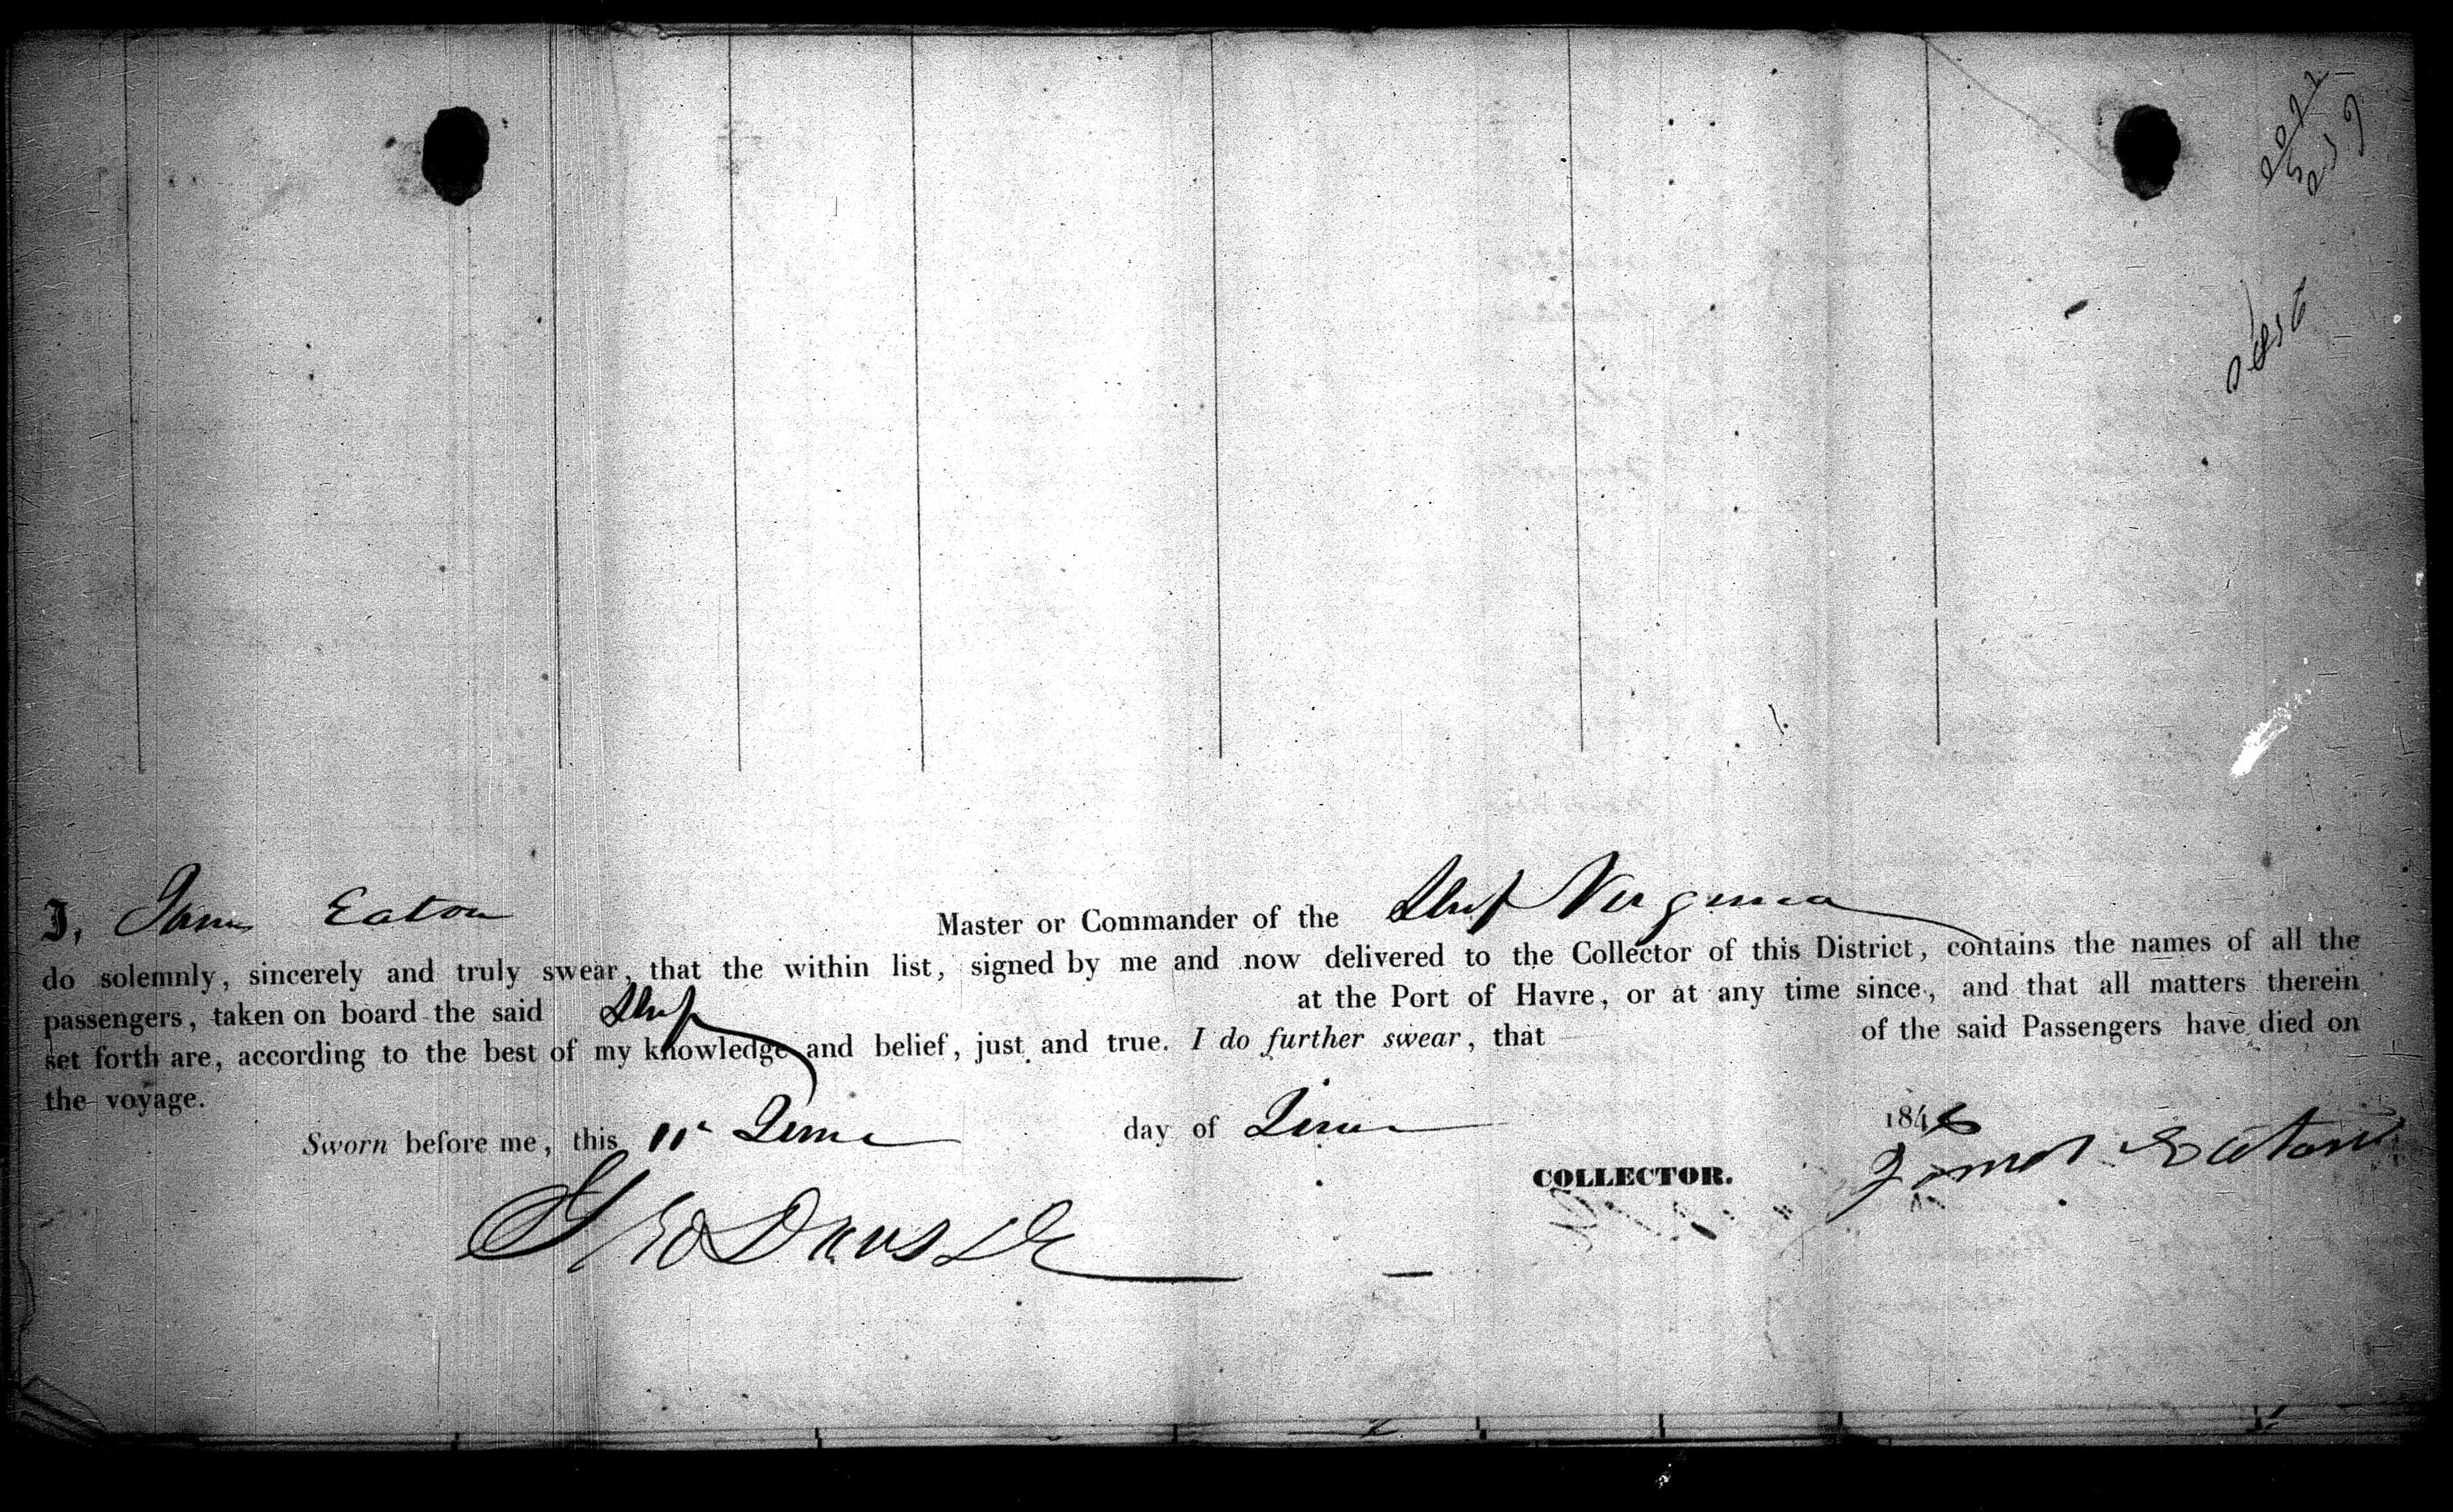 I, James Eaton Master or Commander of the Ship Virginia
do solemnly, sincerely and truly swear, that the within list, signed by me and now delivered to the Collector of this District, contains the names of all the
passengers, taken on board the said Ship at the Port of Havre, or at any time since, and that all matters therein
set forth are, according to the best of my knowledge and belief, just and true. I do further swear, that of the said Passengers have died on
the voyage.
Sworn before me, this 11 June day of June 1846
COLLECTOR. James Eaton
Geo Davis